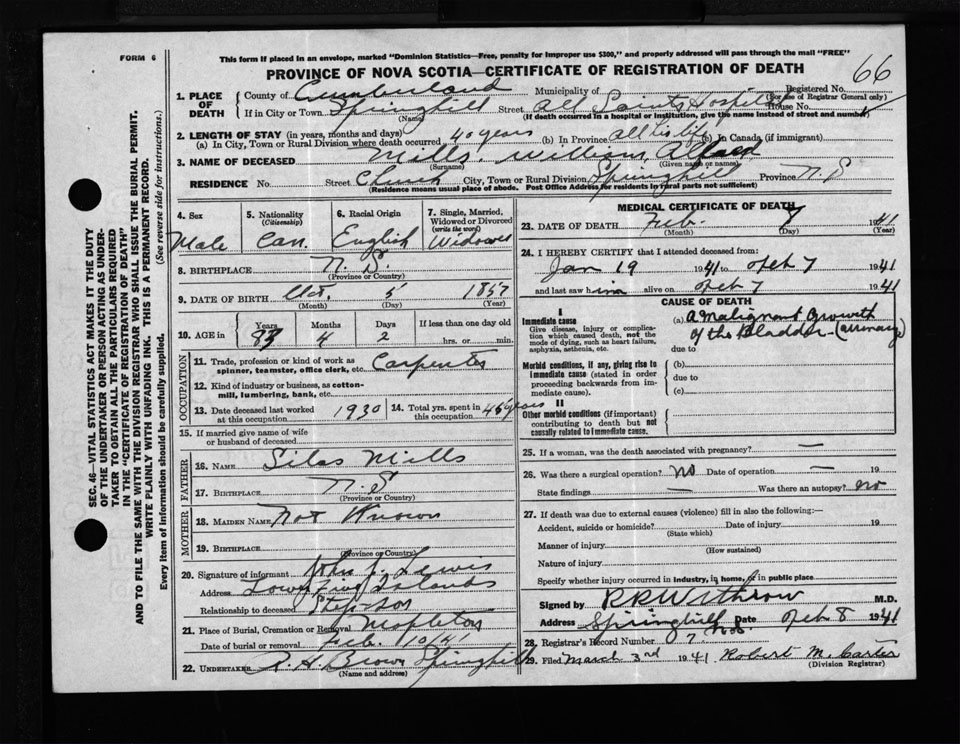 FORM 6
This form if placed in an envelope, marked "Dominion Statistics—Free, penalty for improper use $300," and properly addressed will pass through the mail "FREE"
PROVINCE OF NOVA SCOTIA—CERTIFICATE OF REGISTRATION OF DEATH
66
1. PLACE OF DEATH
County of Cumberland Municipality of Registered No.
(For use of Registrar General only)
If in City or Town Springhill Street All Saints Hospital House No.
(Name) (If death occurred in a hospital or institution, give the name instead of street and number)
2. LENGTH OF STAY (in years, months and days)
(a) In City, Town or Rural Division where death occurred 40 years (b) In Province all his life (c) In Canada (if immigrant)
3. NAME OF DECEASED Mills, William, Alfred
(Surname) (Given name or names)
RESIDENCE No. Street Church City, Town or Rural Division Springhill Province N.S
(Residence means usual place of abode. Post Office Address for residents in rural parts not sufficient)
4. Sex Male
5. Nationality (Citizenship) Can.
6. Racial Origin English
7. Single, Married, Widowed or Divorced (write the word) Widowed
8. BIRTHPLACE N.S.
(Province or Country)
9. DATE OF BIRTH Oct. 5 1857
(Month) (Day) (Year)
10. AGE in Years Months Days If less than one day old
83 4 2 hrs. or min.
OCCUPATION
11. Trade, profession or kind of work as spinner, teamster, office clerk, etc. Carpenter
12. Kind of industry or business, as cotton-mill, lumbering, bank, etc.
13. Date deceased last worked at this occupation 1930
14. Total yrs. spent in this occupation 45 years
15. If married give name of wife or husband of deceased
FATHER
16. NAME Silas Mills
17. BIRTHPLACE N.S
(Province or Country)
MOTHER
18. MAIDEN NAME Not Known
19. BIRTHPLACE
(Province or Country)
20. Signature of informant John J. Lewis
Address Lower Five Islands
Relationship to deceased Stepson
21. Place of Burial, Cremation or Removal Mapleton
Date of burial or removal Feb. 10/41
22. UNDERTAKER R. H. Brown Springhill
(Name and address)
MEDICAL CERTIFICATE OF DEATH
23. DATE OF DEATH Feb. 7 1941
(Month) (Day) (Year)
24. I HEREBY CERTIFY that I attended deceased from:
Jan 19 1941 to Feb 7 1941
and last saw him alive on Feb 7 1941
CAUSE OF DEATH
I
Immediate cause
Give disease, injury or complication which caused death, not the mode of dying, such as heart failure, asphyxia, asthenia, etc.
(a) A Malignant Growth
of the Bladder (primary)
due to
Morbid conditions, if any, giving rise to immediate cause (stated in order proceeding backwards from immediate cause).
(b)
due to
(c)
II
Other morbid conditions (if important) contributing to death but not causally related to immediate cause.
25. If a woman, was the death associated with pregnancy? —
26. Was there a surgical operation? No Date of operation — 19
State findings — Was there an autopsy? no
27. If death was due to external causes (violence) fill in also the following:—
Accident, suicide or homicide? Date of injury 19
(State which)
Manner of injury
(How sustained)
Nature of injury
Specify whether injury occurred in industry, in home, or in public place
Signed by R R Withrow M.D.
Address Springhill N.S. Date Feb 8 1941
28. Registrar's Record Number 7
29. Filed March 3rd 1941 Robert M. Carter
(Division Registrar)
SEC. 46—VITAL STATISTICS ACT MAKES IT THE DUTY
OF THE UNDERTAKER OR PERSON ACTING AS UNDER-
TAKER TO OBTAIN ALL THE PARTICULARS REQUIRED
IN THE "CERTIFICATE OF REGISTRATION OF DEATH"
AND TO FILE THE SAME WITH THE DIVISION REGISTRAR WHO SHALL ISSUE THE BURIAL PERMIT.
WRITE PLAINLY WITH UNFADING INK. THIS IS A PERMANENT RECORD.
Every item of information should be carefully supplied. (See reverse side for instructions.)